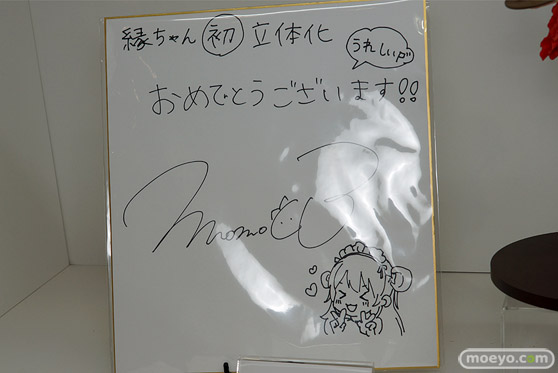 縁ちゃん 初 立体化
うれしいが
おめでとうございます!!
momoco
moeyo.com